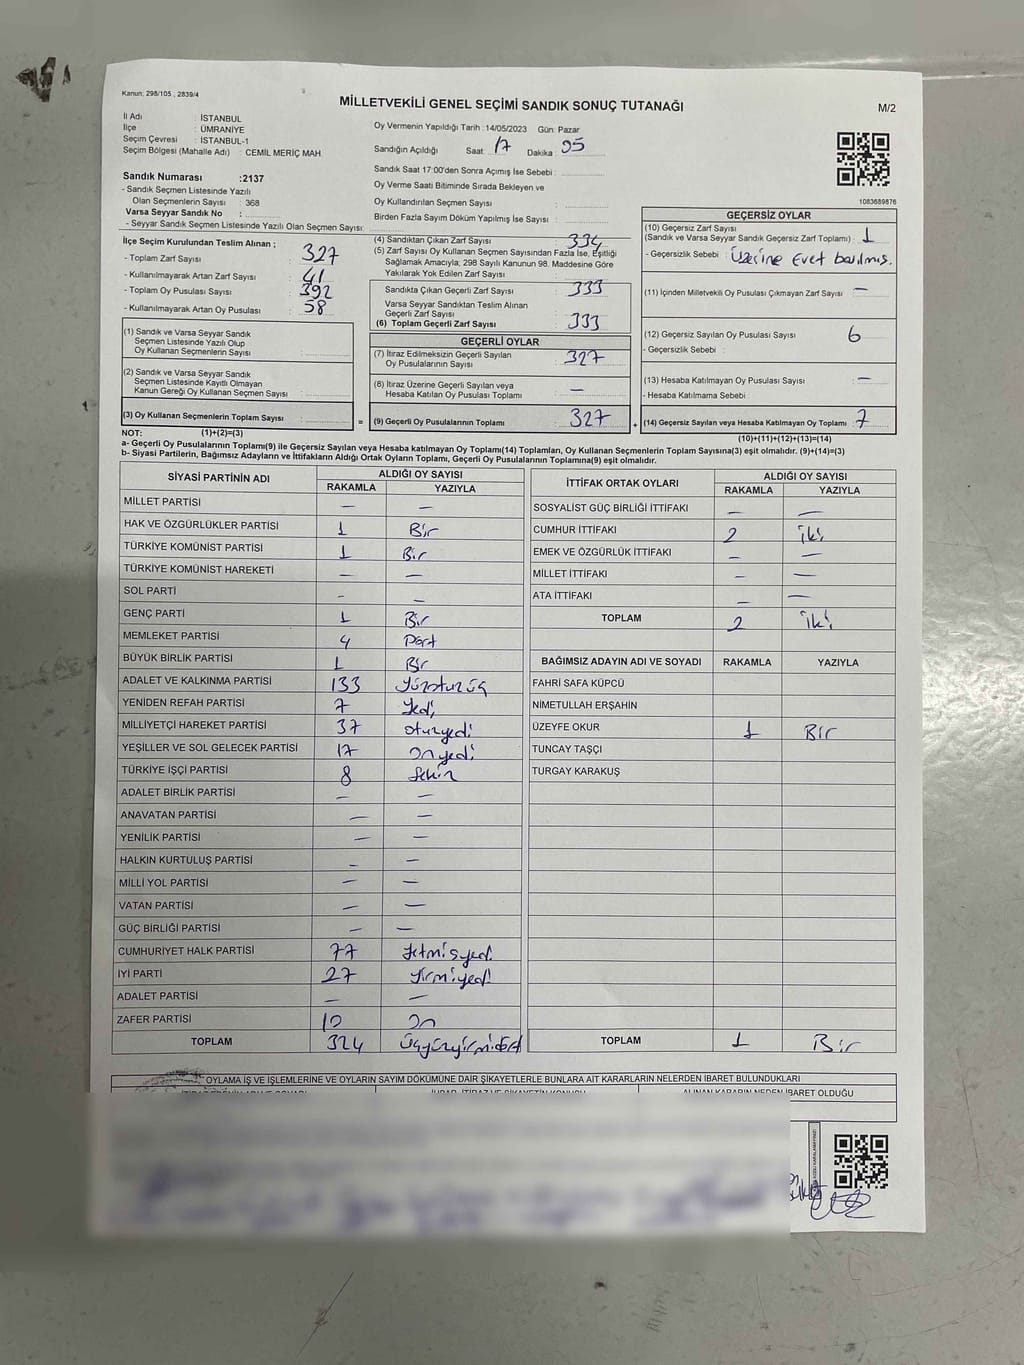 Kanun: 298/105 , 2839/4
MİLLETVEKİLİ GENEL SEÇİMİ SANDIK SONUÇ TUTANAĞI
M/2
İl Adı : İSTANBUL
İlçe : ÜMRANİYE
Seçim Çevresi : İSTANBUL-1
Seçim Bölgesi (Mahalle Adı) : CEMİL MERİÇ MAH.
Oy Vermenin Yapıldığı Tarih : 14/05/2023 Gün: Pazar
Sandığın Açıldığı Saat : 17 Dakika : 05
Sandık Saat 17:00'den Sonra Açımış İse Sebebi :
Oy Verme Saati Bitiminde Sırada Bekleyen ve
Oy Kullandırılan Seçmen Sayısı :
Birden Fazla Sayım Döküm Yapılmış İse Sayısı :
1083689876
Sandık Numarası :2137
- Sandık Seçmen Listesinde Yazılı
Olan Seçmenlerin Sayısı : 368
Varsa Seyyar Sandık No :
- Seyyar Sandık Seçmen Listesinde Yazılı Olan Seçmen Sayısı:
İlçe Seçim Kurulundan Teslim Alınan ;
- Toplam Zarf Sayısı : 327
- Kullanılmayarak Artan Zarf Sayısı : 41
- Toplam Oy Pusulası Sayısı : 392
- Kullanılmayarak Artan Oy Pusulası : 58
(1) Sandık ve Varsa Seyyar Sandık
Seçmen Listesinde Yazılı Olup
Oy Kullanan Seçmenlerin Sayısı :
(2) Sandık ve Varsa Seyyar Sandık
Seçmen Listesinde Kayıtlı Olmayan
Kanun Gereği Oy Kullanan Seçmen Sayısı :
(3) Oy Kullanan Seçmenlerin Toplam Sayısı :
(1)+(2)=(3)
(4) Sandıktan Çıkan Zarf Sayısı : 334
(5) Zarf Sayısı Oy Kullanan Seçmen Sayısından Fazla İse, Eşitliği
Sağlamak Amacıyla; 298 Sayılı Kanunun 98. Maddesine Göre
Yakılarak Yok Edilen Zarf Sayısı :
Sandıkta Çıkan Geçerli Zarf Sayısı : 333
Varsa Seyyar Sandıktan Teslim Alınan
Geçerli Zarf Sayısı :
(6) Toplam Geçerli Zarf Sayısı : 333
GEÇERLİ OYLAR
(7) İtiraz Edilmeksizin Geçerli Sayılan
Oy Pusulalarının Sayısı : 327
(8) İtiraz Üzerine Geçerli Sayılan veya
Hesaba Katılan Oy Pusulası Toplamı : —
= (9) Geçerli Oy Pusulalarının Toplamı : 327
GEÇERSİZ OYLAR
(10) Geçersiz Zarf Sayısı
(Sandık ve Varsa Seyyar Sandık Geçersiz Zarf Toplamı) : 1
- Geçersizlik Sebebi : Üzerine Evet basılmış.
(11) İçinden Milletvekili Oy Pusulası Çıkmayan Zarf Sayısı : —
(12) Geçersiz Sayılan Oy Pusulası Sayısı : 6
- Geçersizlik Sebebi :
(13) Hesaba Katılmayan Oy Pusulası Sayısı : —
- Hesaba Katılmama Sebebi :
+ (14) Geçersiz Sayılan veya Hesaba Katılmayan Oy Toplamı : 7
(10)+(11)+(12)+(13)=(14)
NOT:
a- Geçerli Oy Pusulalarının Toplamı(9) ile Geçersiz Sayılan veya Hesaba katılmayan Oy Toplamı(14) Toplamları, Oy Kullanan Seçmenlerin Toplam Sayısına(3) eşit olmalıdır. (9)+(14)=(3)
b- Siyasi Partilerin, Bağımsız Adayların ve İttifakların Aldığı Ortak Oyların Toplamı, Geçerli Oy Pusulalarının Toplamına(9) eşit olmalıdır.
SİYASİ PARTİNİN ADI ALDIĞI OY SAYISI
RAKAMLA YAZIYLA
MİLLET PARTİSİ — —
HAK VE ÖZGÜRLÜKLER PARTİSİ 1 Bir
TÜRKİYE KOMÜNİST PARTİSİ 1 Bir
TÜRKİYE KOMÜNİST HAREKETİ — —
SOL PARTİ - —
GENÇ PARTİ 1 Bir
MEMLEKET PARTİSİ 4 Dört
BÜYÜK BİRLİK PARTİSİ 1 Bir
ADALET VE KALKINMA PARTİSİ 133 Yüzotuzüç
YENİDEN REFAH PARTİSİ 7 Yedi
MİLLİYETÇİ HAREKET PARTİSİ 37 otuzyedi
YEŞİLLER VE SOL GELECEK PARTİSİ 17 onyedi
TÜRKİYE İŞÇİ PARTİSİ 8 Sekiz
ADALET BİRLİK PARTİSİ — —
ANAVATAN PARTİSİ — —
YENİLİK PARTİSİ — —
HALKIN KURTULUŞ PARTİSİ — —
MİLLİ YOL PARTİSİ — —
VATAN PARTİSİ — —
GÜÇ BİRLİĞİ PARTİSİ — —
CUMHURİYET HALK PARTİSİ 77 Yetmişyedi
İYİ PARTİ 27 Yirmiyedi
ADALET PARTİSİ — —
ZAFER PARTİSİ 10 On
TOPLAM 324 Üçyüzyirmidört
İTTİFAK ORTAK OYLARI ALDIĞI OY SAYISI
RAKAMLA YAZIYLA
SOSYALİST GÜÇ BİRLİĞİ İTTİFAKI — —
CUMHUR İTTİFAKI 2 iki
EMEK VE ÖZGÜRLÜK İTTİFAKI — —
MİLLET İTTİFAKI — —
ATA İTTİFAKI — —
TOPLAM 2 iki
BAĞIMSIZ ADAYIN ADI VE SOYADI RAKAMLA YAZIYLA
FAHRİ SAFA KÜPCÜ
NİMETULLAH ERŞAHİN
ÜZEYFE OKUR 1 Bir
TUNCAY TAŞÇI
TURGAY KARAKUŞ
TOPLAM 1 Bir
OYLAMA İŞ VE İŞLEMLERİNE VE OYLARIN SAYIM DÖKÜMÜNE DAİR ŞİKAYETLERLE BUNLARA AİT KARARLARIN NELERDEN İBARET BULUNDUKLARI
ALINAN KARARIN NEDEN İBARET OLDUĞU